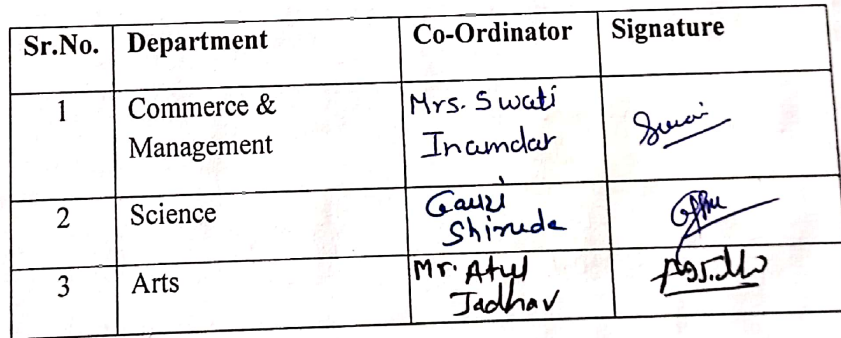 Sr.No. Department Co-Ordinator Signature
1 Commerce & Mrs. Swati
Management Inamdar
2 Science Gauri
Shirude
3 Arts Mr. Atul
Jadhav